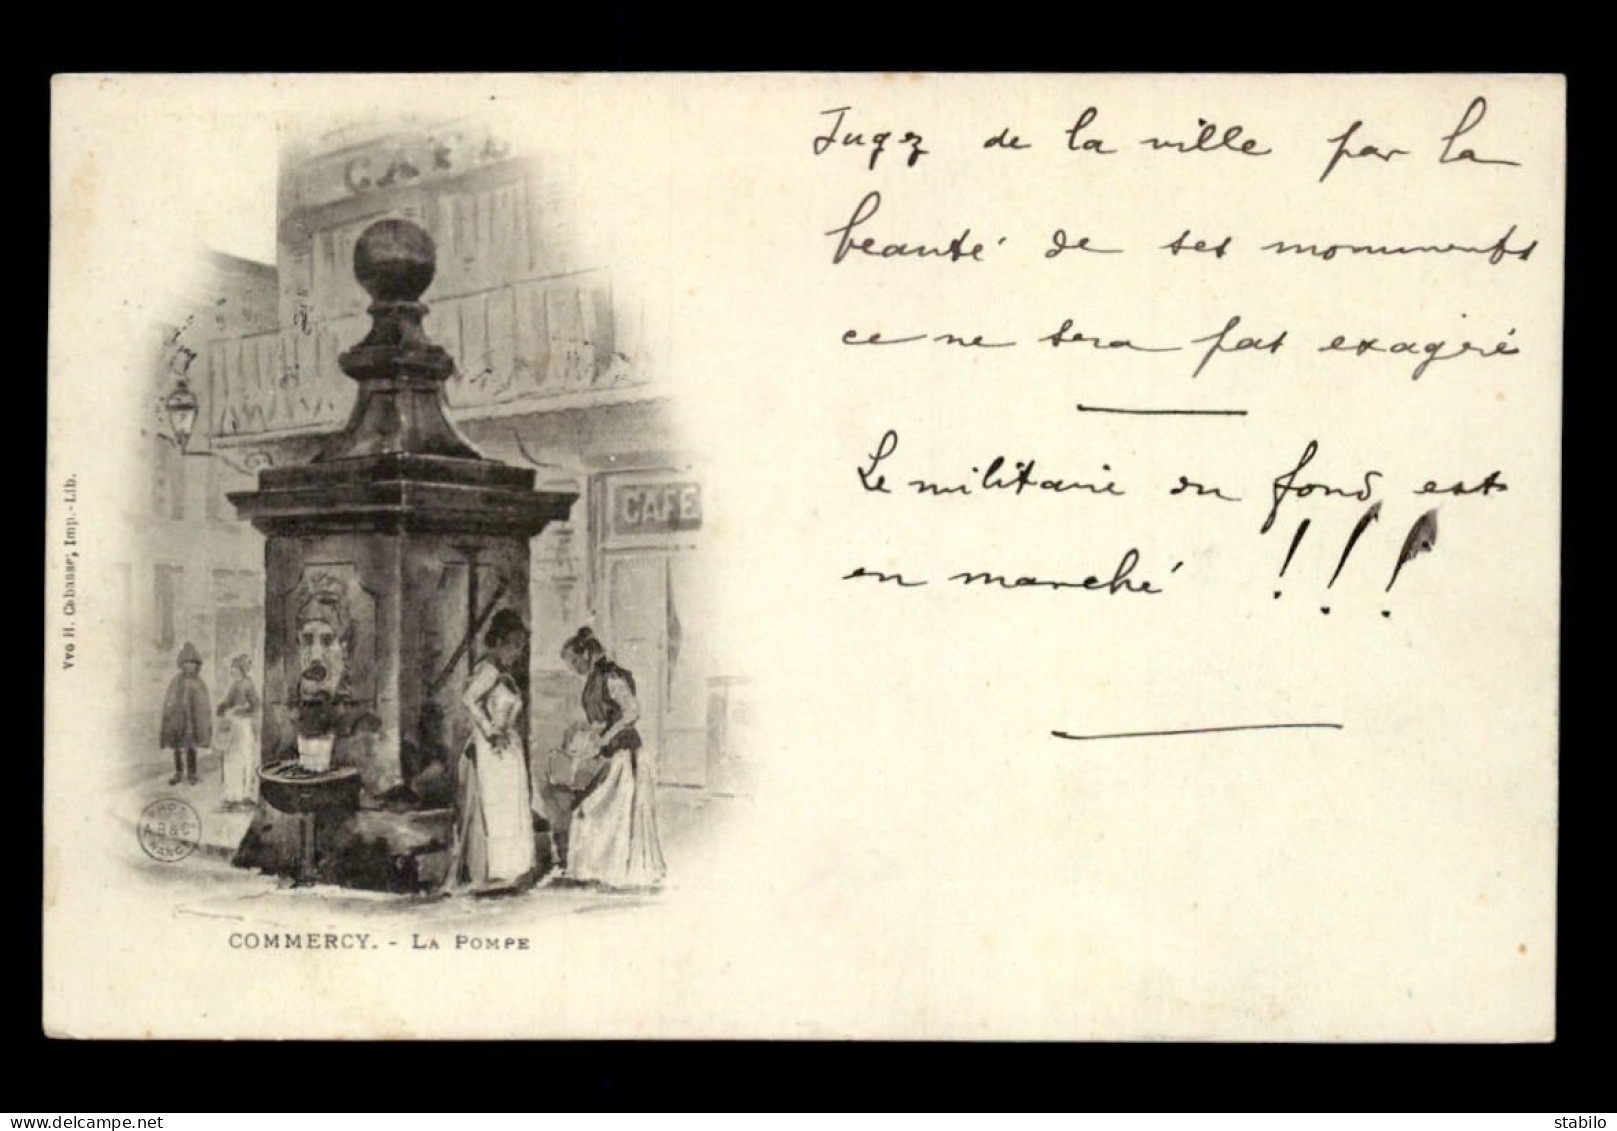 CAFÉ
CAFE
Vve H. Cabasse, Imp.-Lib.
A.B & Cie
NANCY
COMMERCY. - LA POMPE
Jugez de la ville par la
beauté de ses monuments
ce ne sera pas exagéré
Le militaire du fond est
en marché !!!
stabilo